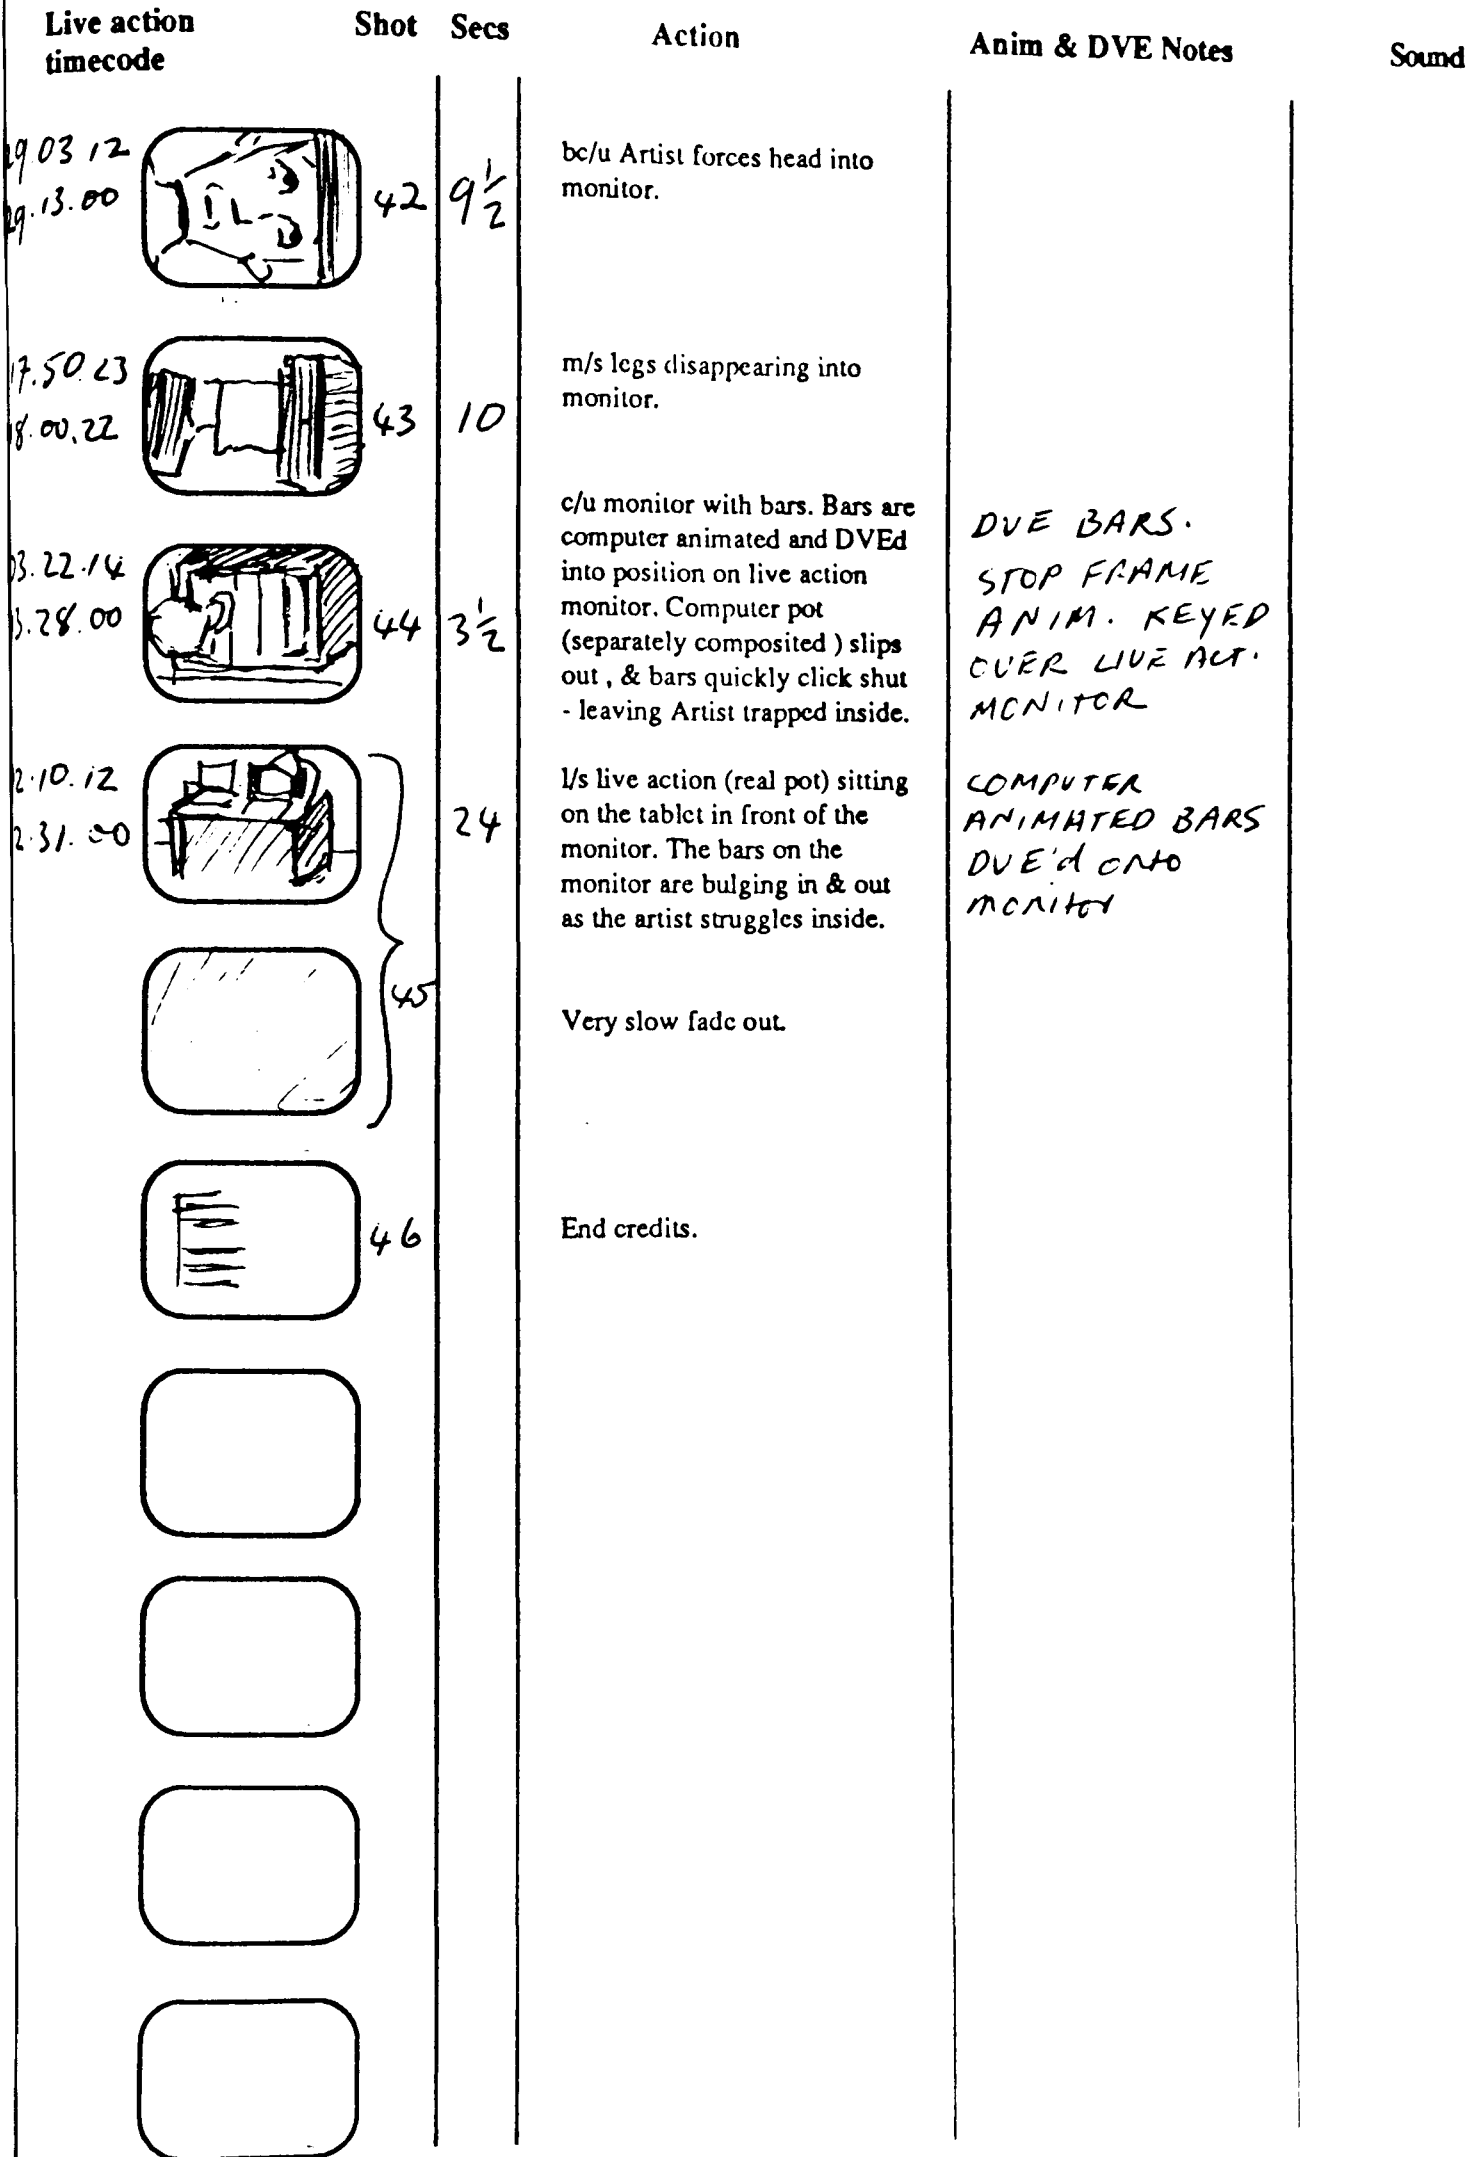 Live action Shot Secs Action Anim & DVE Notes Sound
timecode
29.03.12
29.13.00
42
9½
bc/u Artist forces head into
monitor.
17.50.23
18.00.22
43
10
m/s legs disappearing into
monitor.
03.22.14
03.28.00
44
3½
c/u monitor with bars. Bars are
computer animated and DVEd
into position on live action
monitor. Computer pot
(separately composited ) slips
out , & bars quickly click shut
- leaving Artist trapped inside.
DVE BARS.
STOP FRAME
ANIM. KEYED
OVER LIVE ACT.
MONITOR
2.10.12
2.31.00
24
l/s live action (real pot) sitting
on the tablet in front of the
monitor. The bars on the
monitor are bulging in & out
as the artist struggles inside.
COMPUTER
ANIMATED BARS
DVE'd onto
monitor
45
Very slow fade out.
46
End credits.